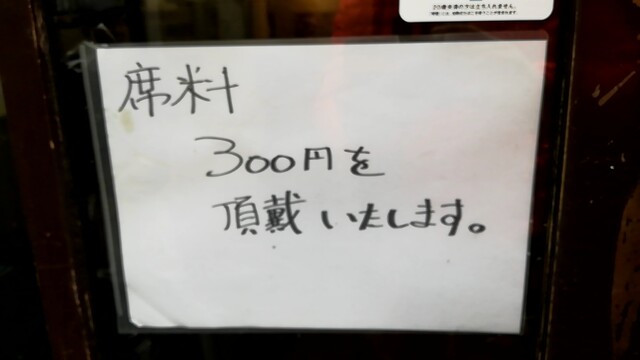 20歳未満の方は立ち入れません。
席料
300円を
頂戴いたします。